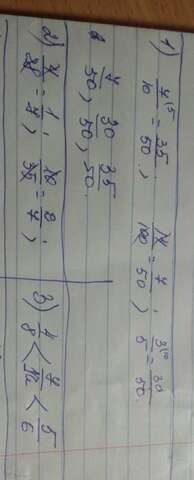 1) 7\5/10 = 35/50 ; 14/100 = 7/50 ; 3\10/5 = 30/50.
7/50, 30/50, 35/50.
2) 7/28 = 1/4 ; 10/35 = 2/7 ;
3) 4/8 < 7/12 < 5/6